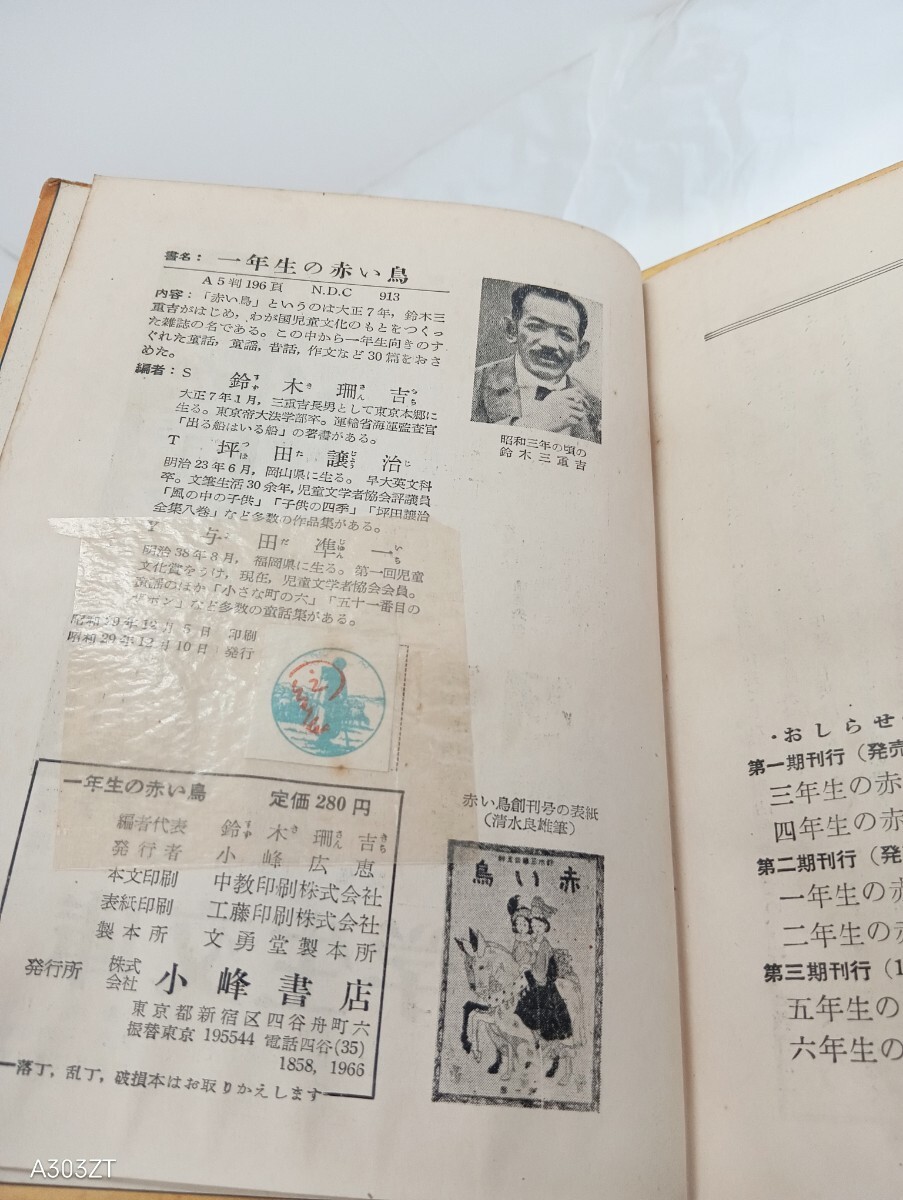 書名： 一年生の赤い鳥
A5判196頁 N.D.C 913
内容：「赤い鳥」というのは大正7年，鈴木三
重吉がはじめ，わが国児童文化のもとをつくっ
た雑誌の名である。この中から一年生向きのす
ぐれた童話，童謡，昔話，作文など30篇をおさ
めた。
編者：S 鈴木珊吉
大正7年1月，三重吉長男として東京本郷に
生る。東京帝大法学部卒。運輸省海運監査官
「出る船はいる船」の著書がある。
T 坪田譲治
明治23年6月，岡山県に生る。早大英文科
卒。文筆生活30余年，児童文学者協会評議員
「風の中の子供」「子供の四季」「坪田譲治
全集八巻」など多数の作品集がある。
Y 与田凖一
明治38年8月，福岡県に生る。第一回児童
文化賞をうけ，現在，児童文学者協会会員。
童謡のほか「小さな町の六」「五十一番目の
ザボン」など多数の童話集がある。
昭和29年12月5日 印刷
昭和29年12月10日 発行
昭和三年の頃の
鈴木三重吉
一年生の赤い鳥 定価280円
編者代表 鈴木珊吉
発行者 小峰広恵
本文印刷 中教印刷株式会社
表紙印刷 工藤印刷株式会社
製本所 文勇堂製本所
発行所 株式会社 小峰書店
東京都新宿区四谷舟町六
振替東京 195544 電話四谷(35)
1858, 1966
落丁，乱丁，破損本はお取りかえします
赤い鳥創刊号の表紙
（清水良雄筆）
鳥い赤
・おしらせ
第一期刊行（発売
三年生の赤
四年生の赤
第二期刊行（発
一年生の赤
二年生の赤
第三期刊行（1
五年生の
六年生の
A303ZT